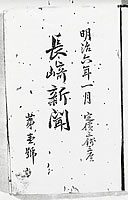 明治六年一月
長崎新聞
第壹號